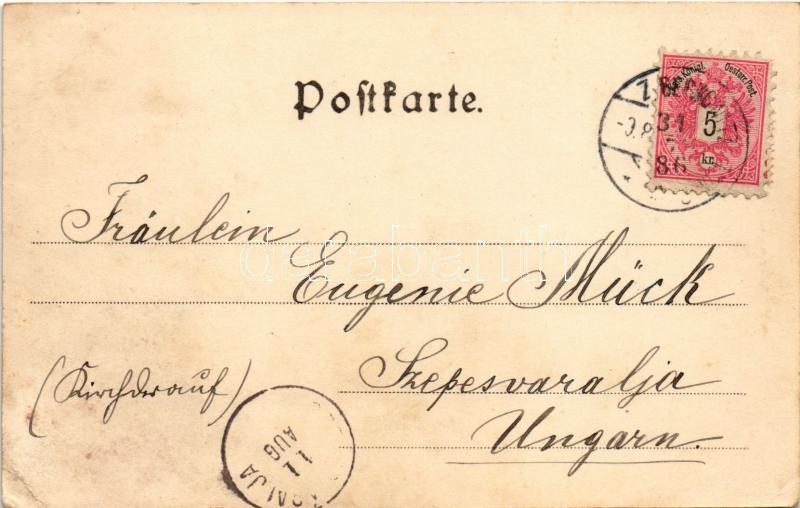 Postkarte.
Kais. Königl. Oesterr. Post.
5
kr.
31
86
Fräulein
Eugenie Mück
(Kirchdrauf)
Szepesvaralja
Ungarn.
11
AUG
darabanth